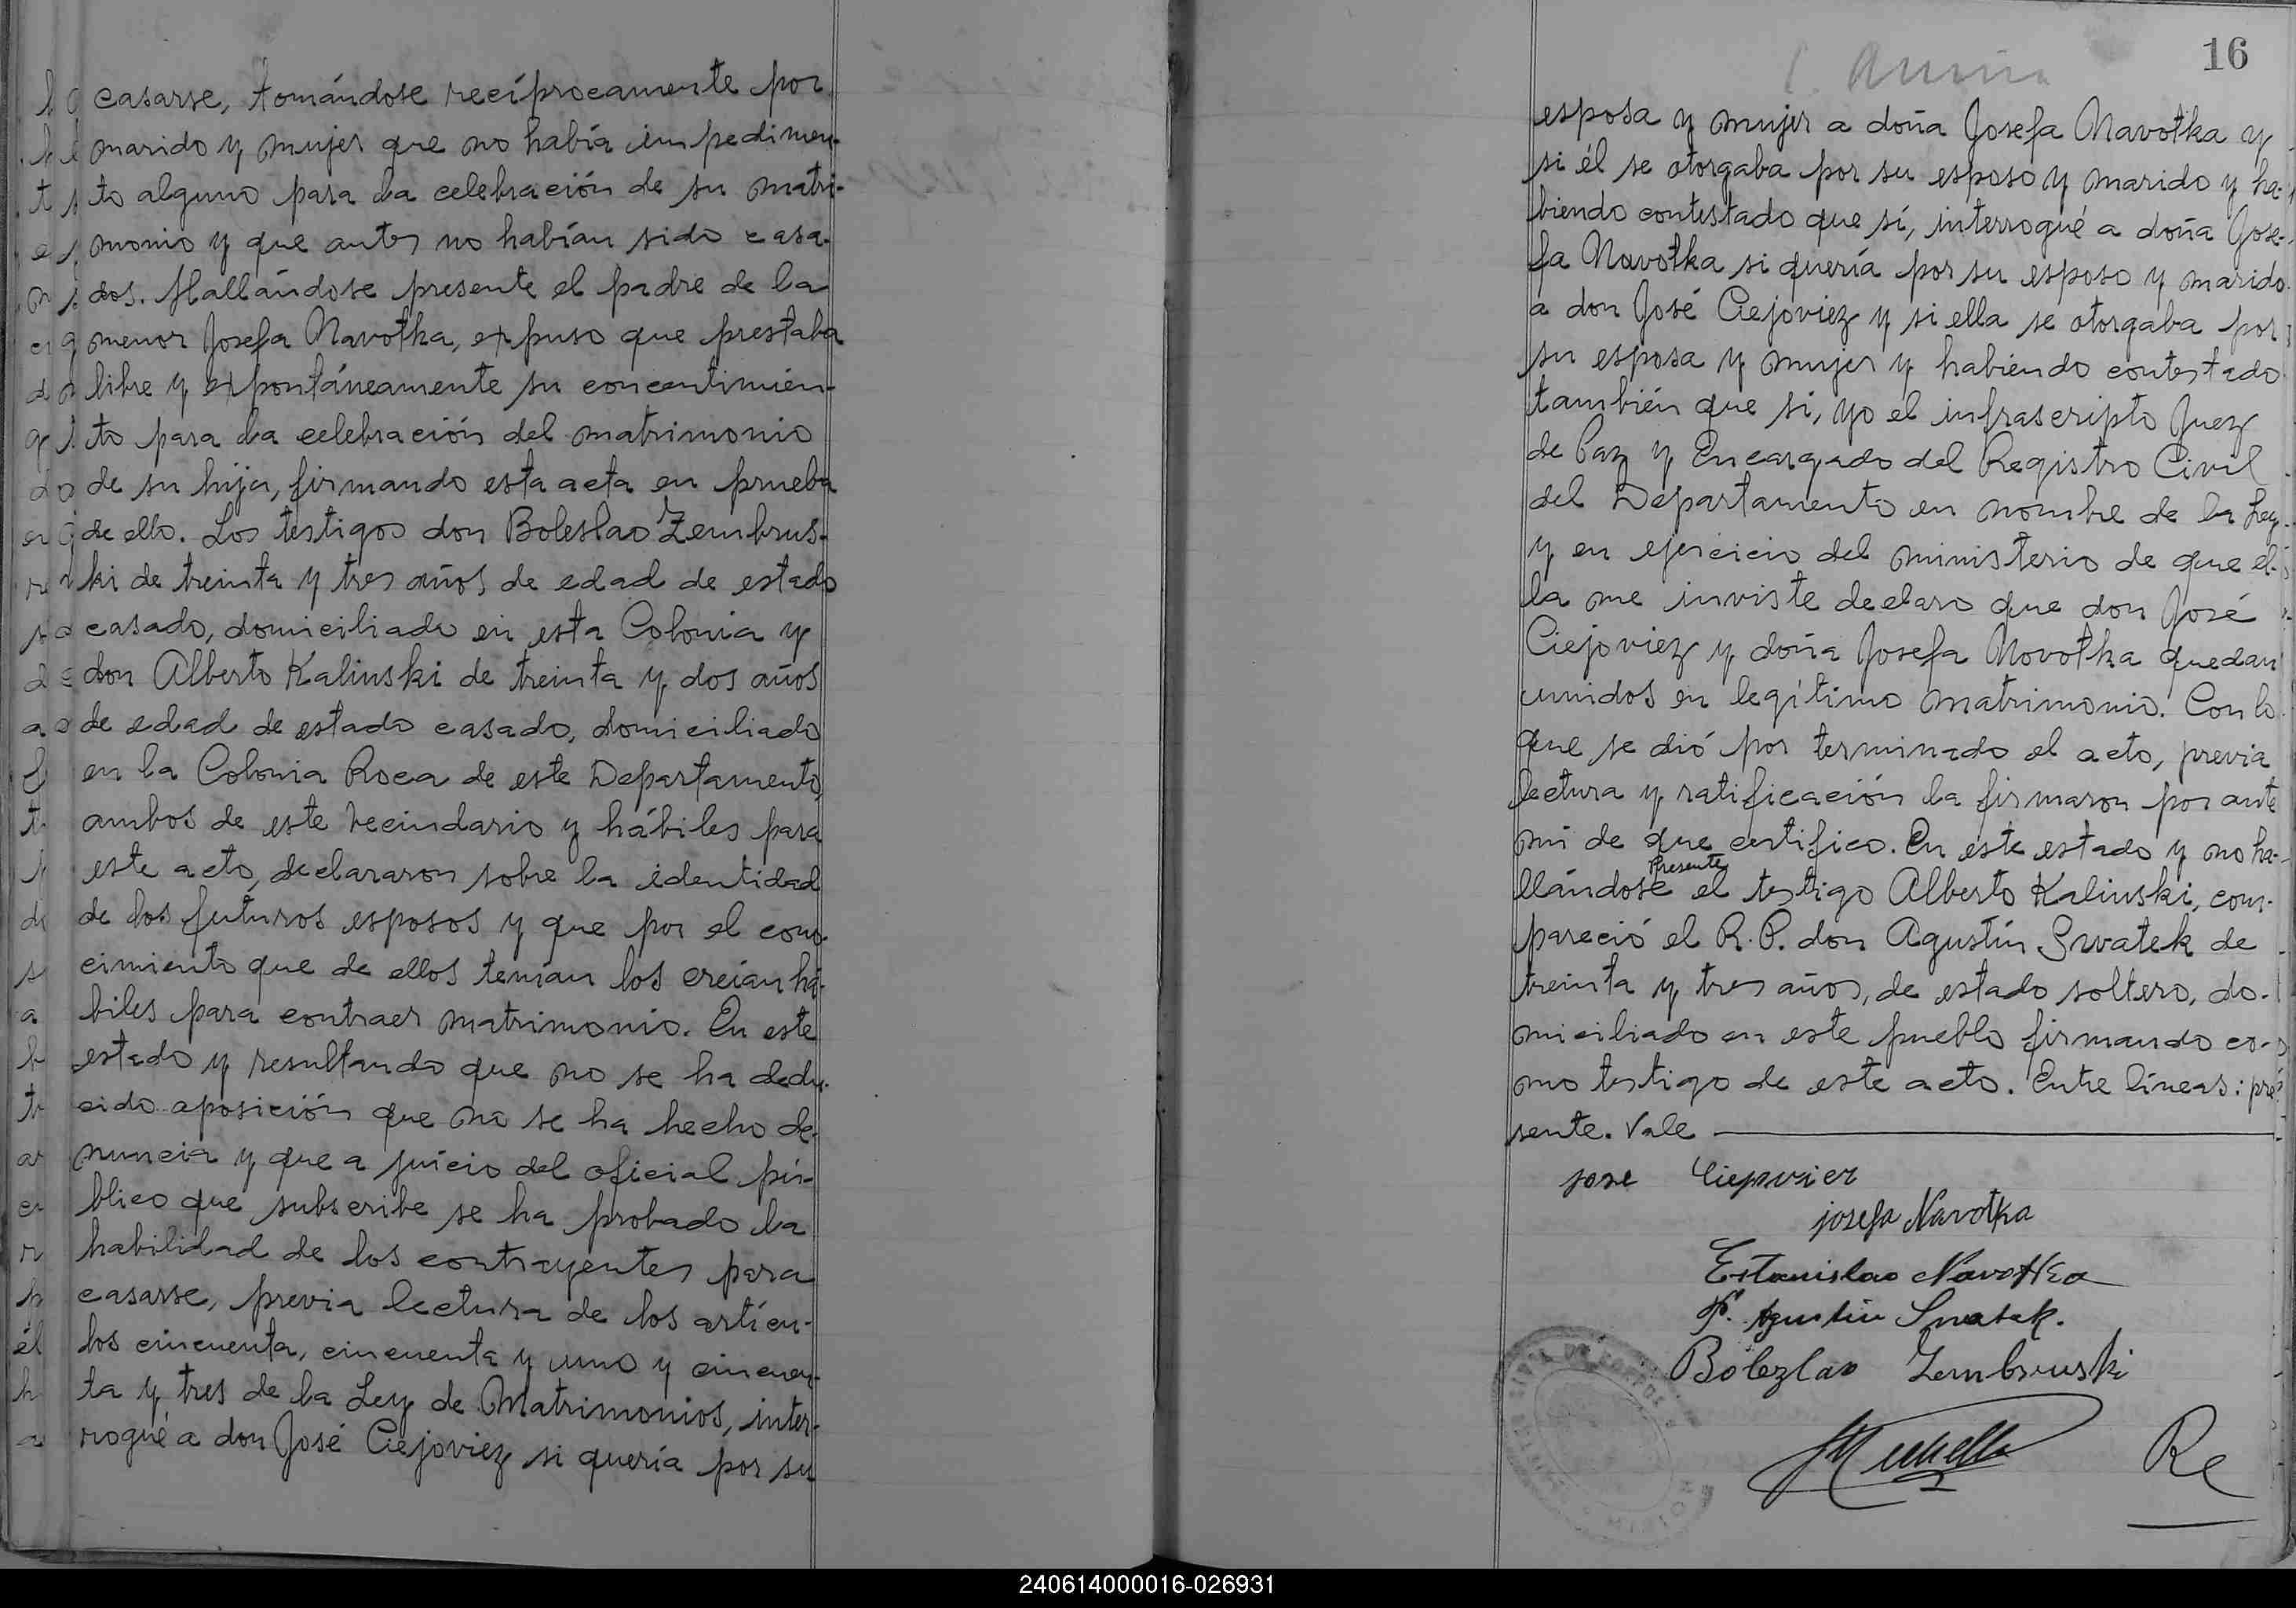 casarse, tomándose recíprocamente por
marido y mujer que no había impedimen-
to alguno para la celebración de su matri-
monio y que antes no habían sido casa-
dos. Hallándose presente el padre de la
menor Josefa Navotka, expuso que prestaba
libre y expontáneamente su concentimien-
to para la celebración del matrimonio
de su hija, firmando esta acta en prueba
de ello. Los testigos don Boleslao Zembrus-
ki de treinta y tres años de edad de estado
casado, domiciliado en esta Colonia y
don Alberto Kalinski de treinta y dos años
de edad de estado casado, domiciliado
en la Colonia Roca de este Departamento,
ambos de este vecindario y hábiles para
este acto, declararon sobre la identidad
de los futuros esposos y que por el cono-
cimiento que de ellos tenían los creían há-
biles para contraer matrimonio. En este
estado y resultando que no se ha dedu-
cido aposición que no se ha hecho de-
nuncia y que a juicio del oficial pú-
blico que subscribe se ha probado la
habilidad de los contrayentes para
casarse, previa lectura de los artícu-
los cincuenta, cincuenta y uno y cincuen-
ta y tres de la Ley de Matrimonios, inter-
rogué a don José Ciejoviez si quería por su
16
esposa y mujer a doña Josefa Navotka y
si él se otorgaba por su esposo y marido y ha-
biendo contestado que sí, interrogué a doña Jose-
fa Navotka si quería por su esposo y marido
a don José Ciejoviez y si ella se otorgaba por
su esposa y mujer y habiendo contestado
también que si, yo el infrascripto Juez
de Paz y Encargado del Registro Civil
del Departamento en nombre de la Ley
y en ejercicio del ministerio de que el-
la me inviste declaro que don José
Ciejoviez y doña Josefa Novotka quedan
unidos en legítimo matrimonio. Con lo
que se dió por terminado el acto, previa
lectura y ratificación la firmaron por ante
mi de que certifico. En este estado y no ha-
presente
llándose el testigo Alberto Kalinski, com-
pareció el R. P. don Agustín Swatek de
treinta y tres años, de estado soltero, do-
miciliado en este pueblo firmando co-
mo testigo de este acto. Entre líneas: pre-
sente. Vale
jose Ciejovier
josefa Navotka
Estanislao Navotka
P. Agustin Swatek.
Bolezlao Zembruski
Re
240614000016-026931